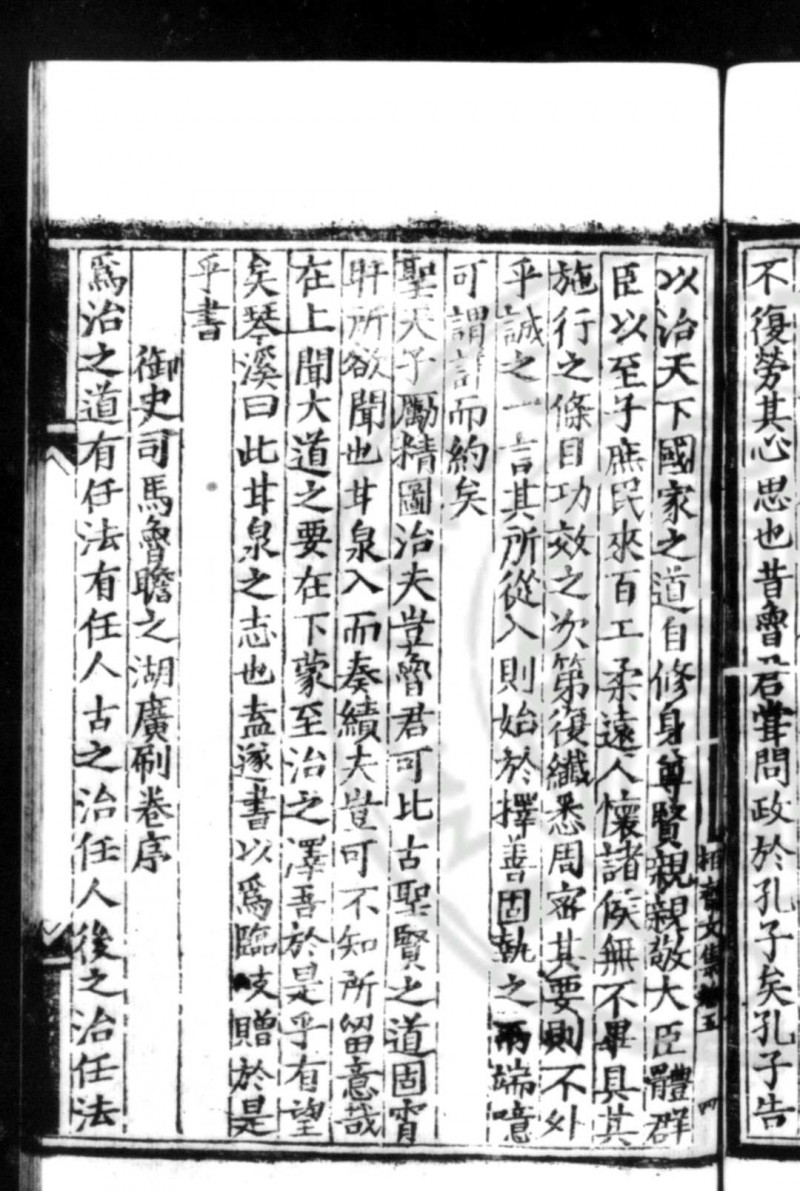 不復勞其心思也昔魯君嘗問政於孔子矣孔子告
文集卷五 四
以治天下國家之道自修身尊賢親親敬大臣體群
臣以至子庶民來百工柔遠人懷諸侯無不畢具其
施行之條目功效之次第復纖悉周密其要則不外
乎誠之一言其所從入則始於擇善固執之兩端噫
可謂詳而約矣
聖天子勵精圖治夫豈魯君可比古聖賢之道固宵
旰所欲聞也甘泉入而奏績夫豈可不知所留意哉
在上聞大道之要在下蒙至治之澤吾於是乎有望
矣琴溪曰此甘泉之志也盍遂書以爲臨岐贈於是
乎書
御史司馬魯瞻之湖廣刷卷序
爲治之道有任法有任人古之治任人後之治任法